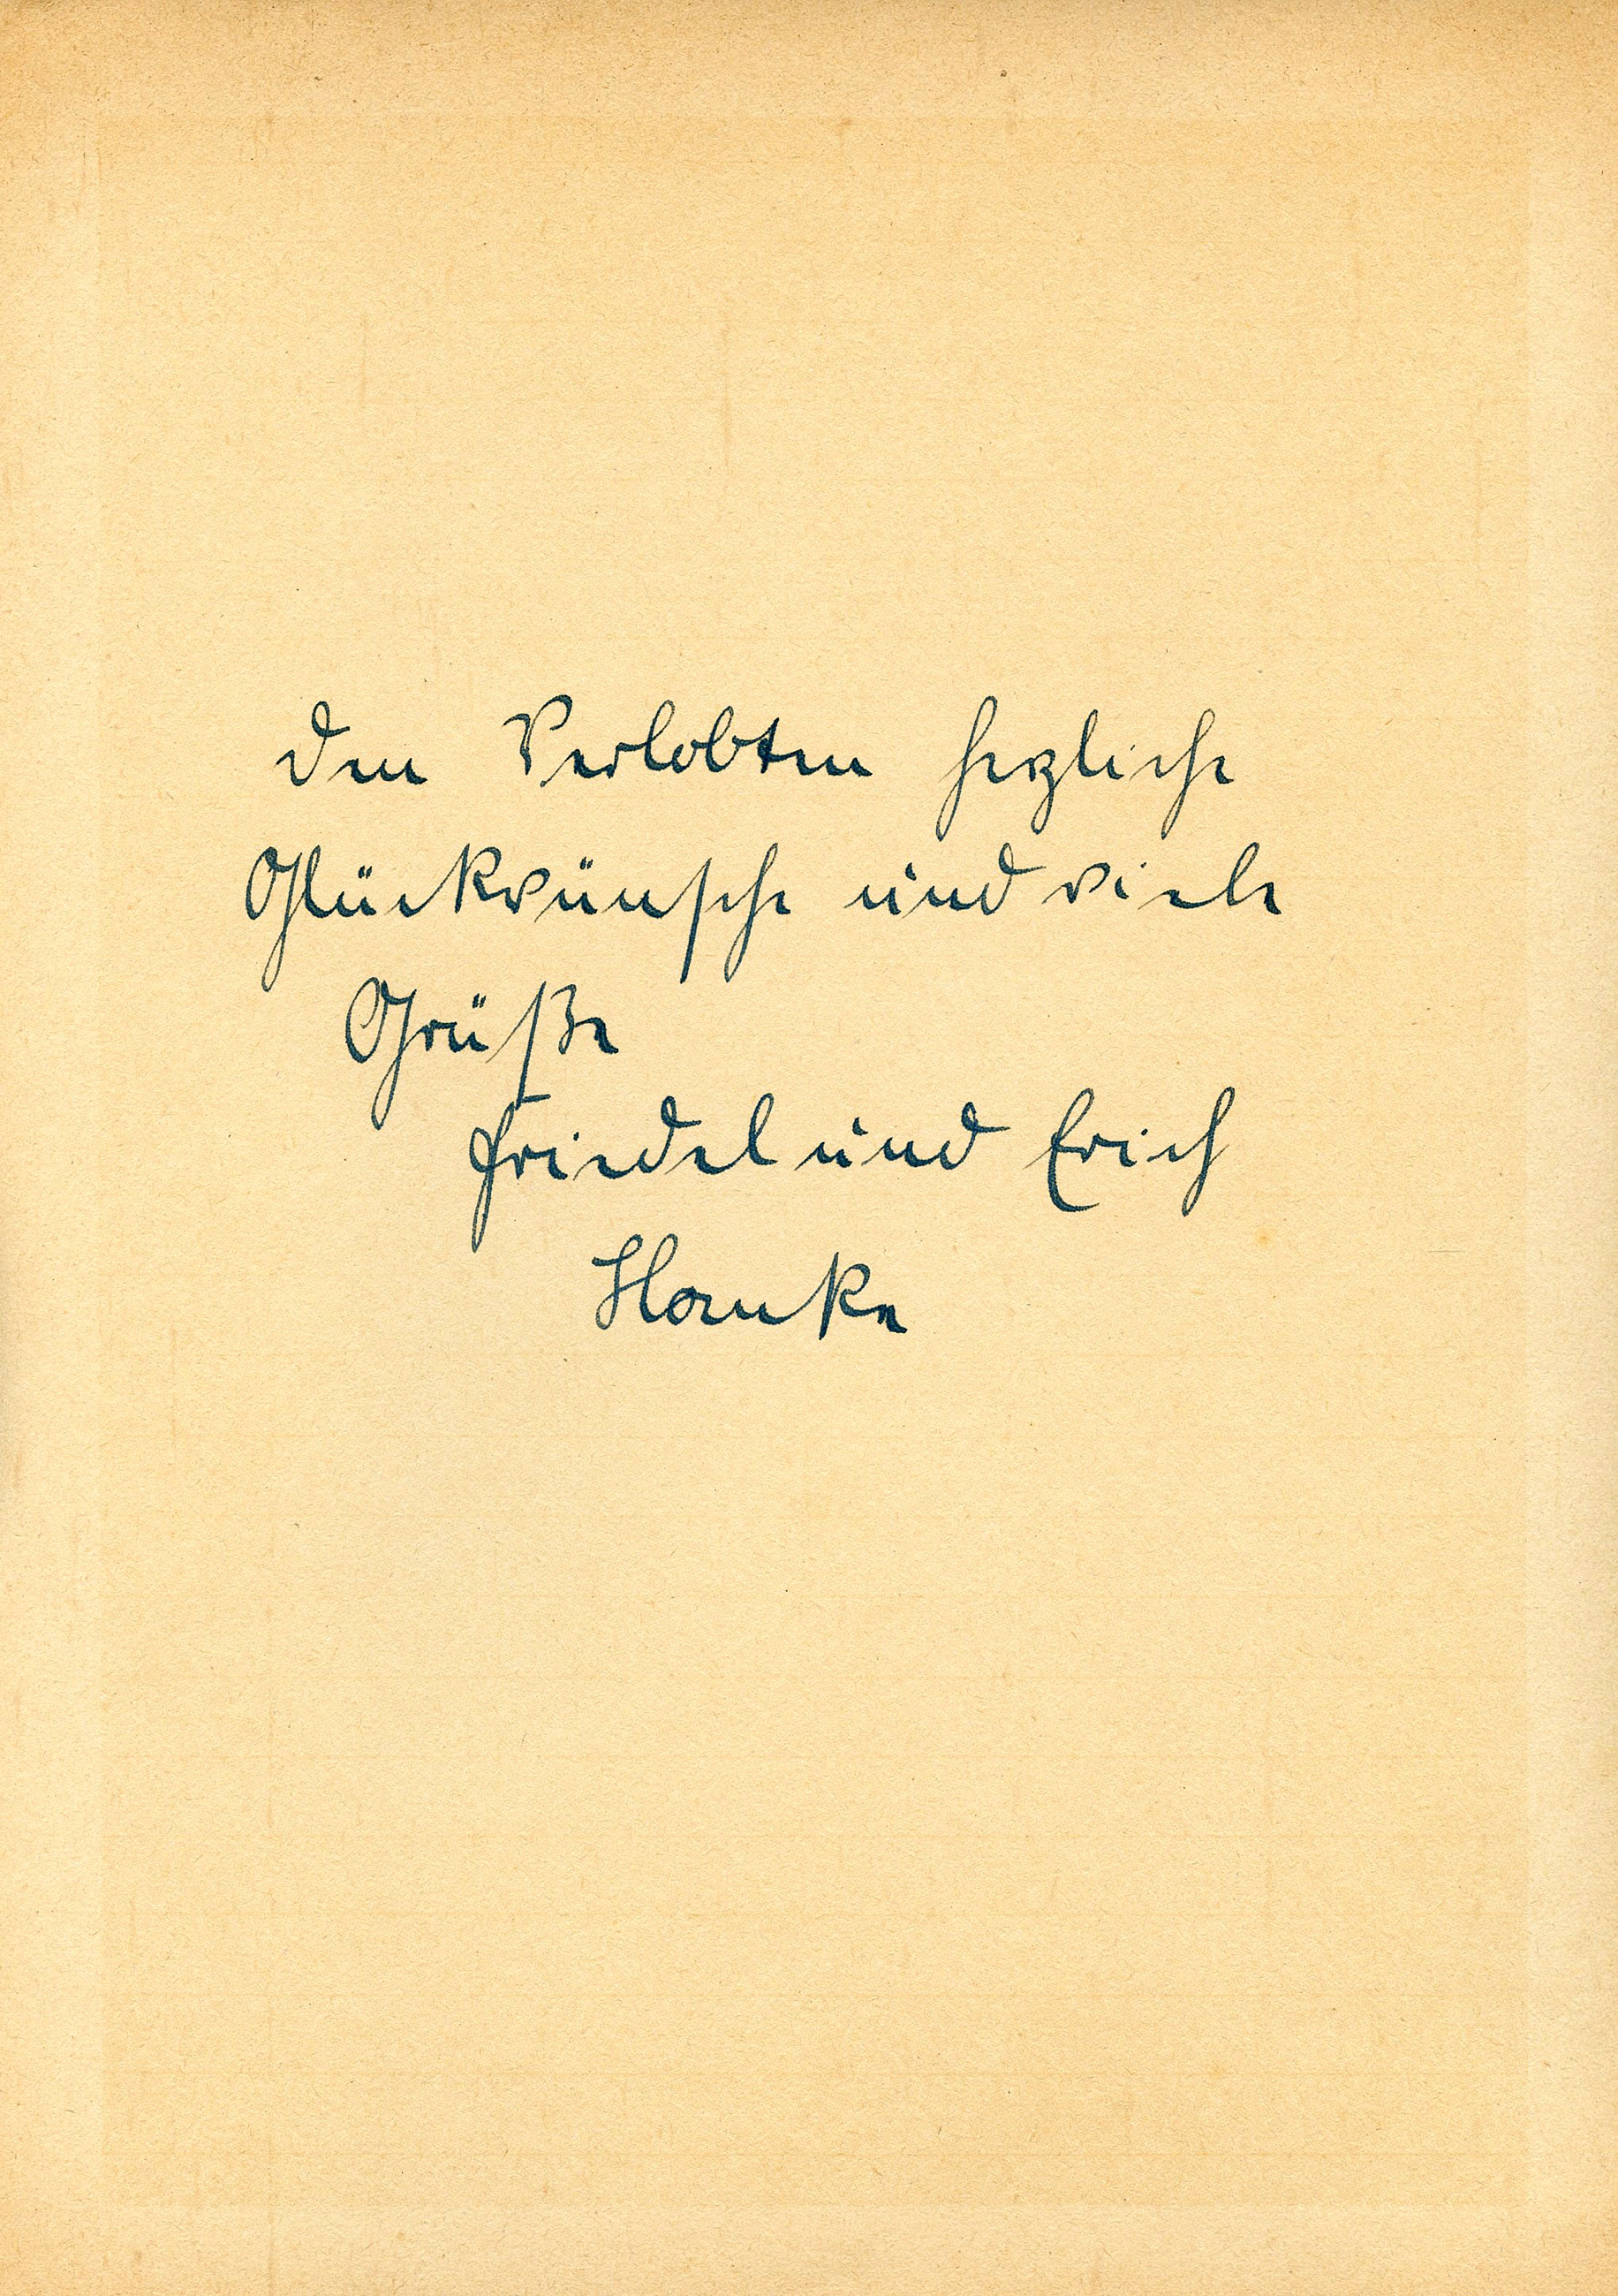 den Verlobten herzliche
Glückwünsche und viele
Grüße
Friedel und Erich
Hanke